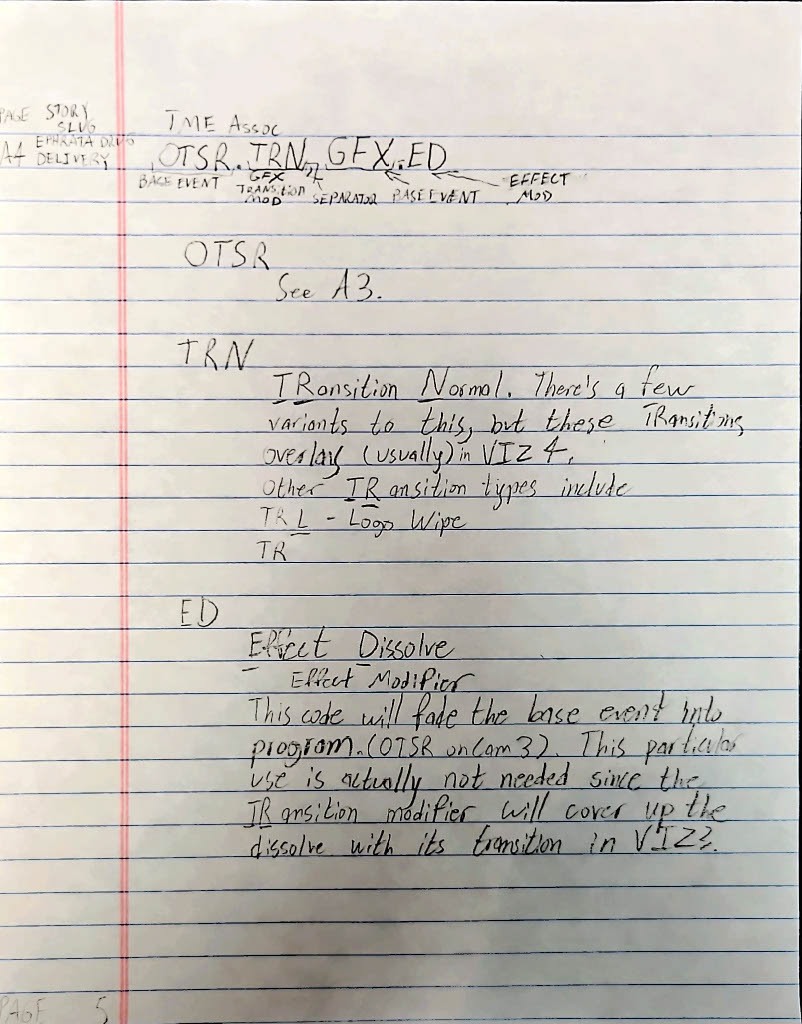 PAGE STORY
SLUG
A4 EPHRATA DRUG
DELIVERY
TME Assoc
OTSR.TRN, GFX.ED
BASE EVENT
GFX
TRANSITION
MOD
SEPARATOR
BASE EVENT
EFFECT
MOD
OTSR
See A3.
TRN
TRansition Normal. There's a few
variants to this, but these TRansitions
overlay (usually) in VIZ 4.
Other TRansition types include
TRL - Logo Wipe
TR
ED
Effect Dissolve
Effect Modifier
This code will fade the base event into
program. (OTSR on Cam 3). This particular
use is actually not needed since the
TRansition modifier will cover up the
dissolve with its transition in VIZ3.
PAGE 5